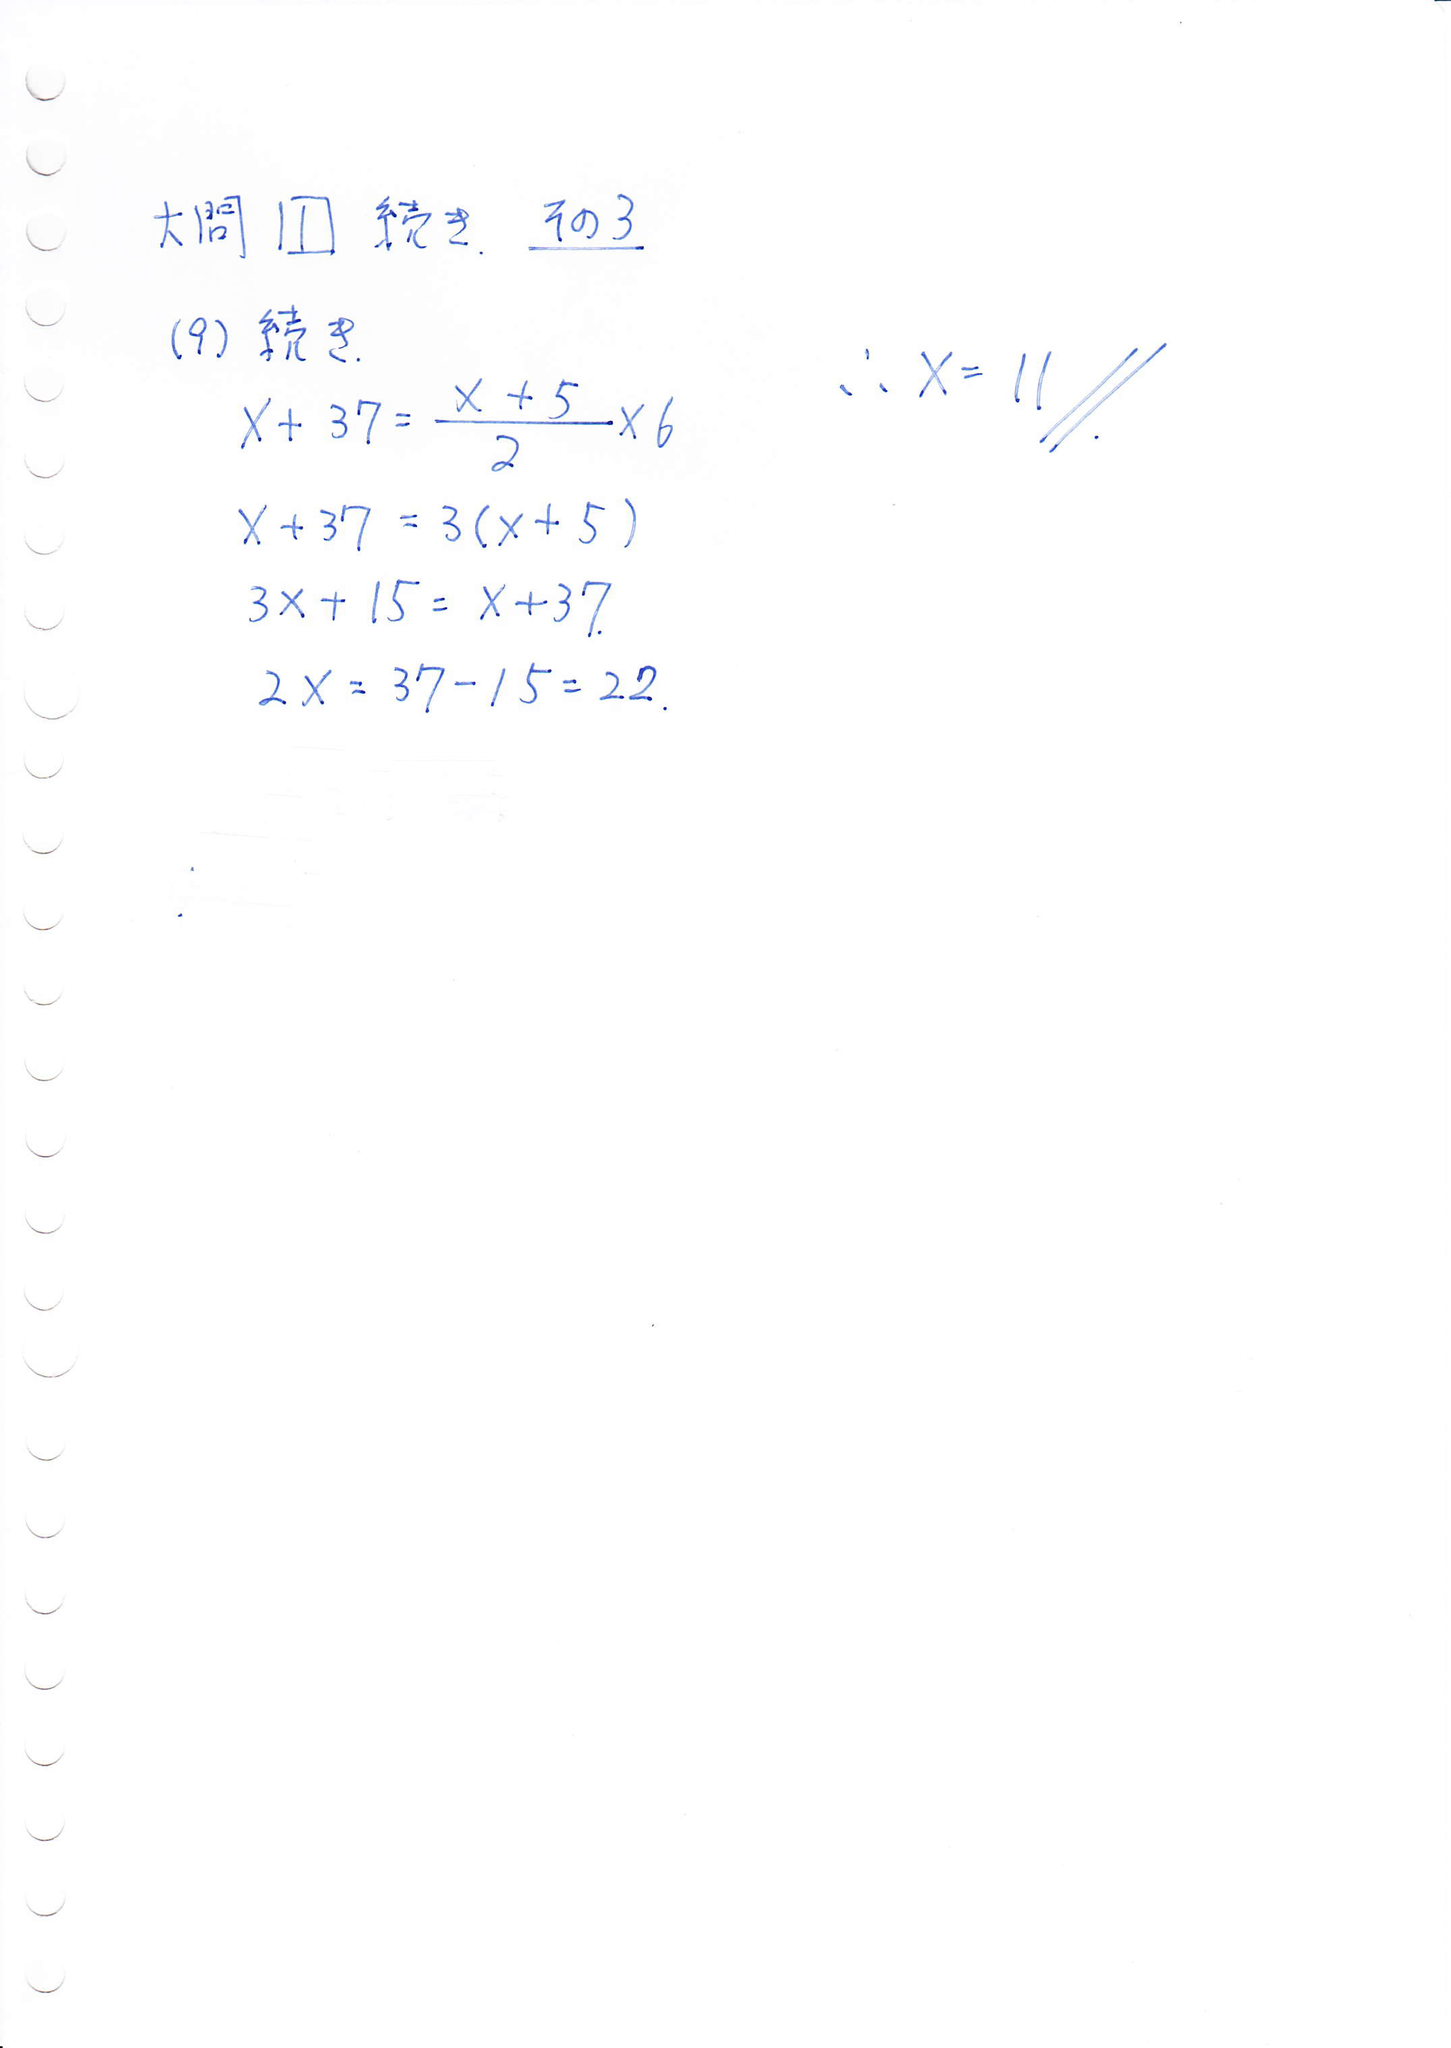 大問 1 続き. その3
(9) 続き.
x + 37 = \frac{x + 5}{2} × 6
x + 37 = 3(x + 5)
3x + 15 = x + 37.
2x = 37 - 15 = 22.
∴ x = 11 //.